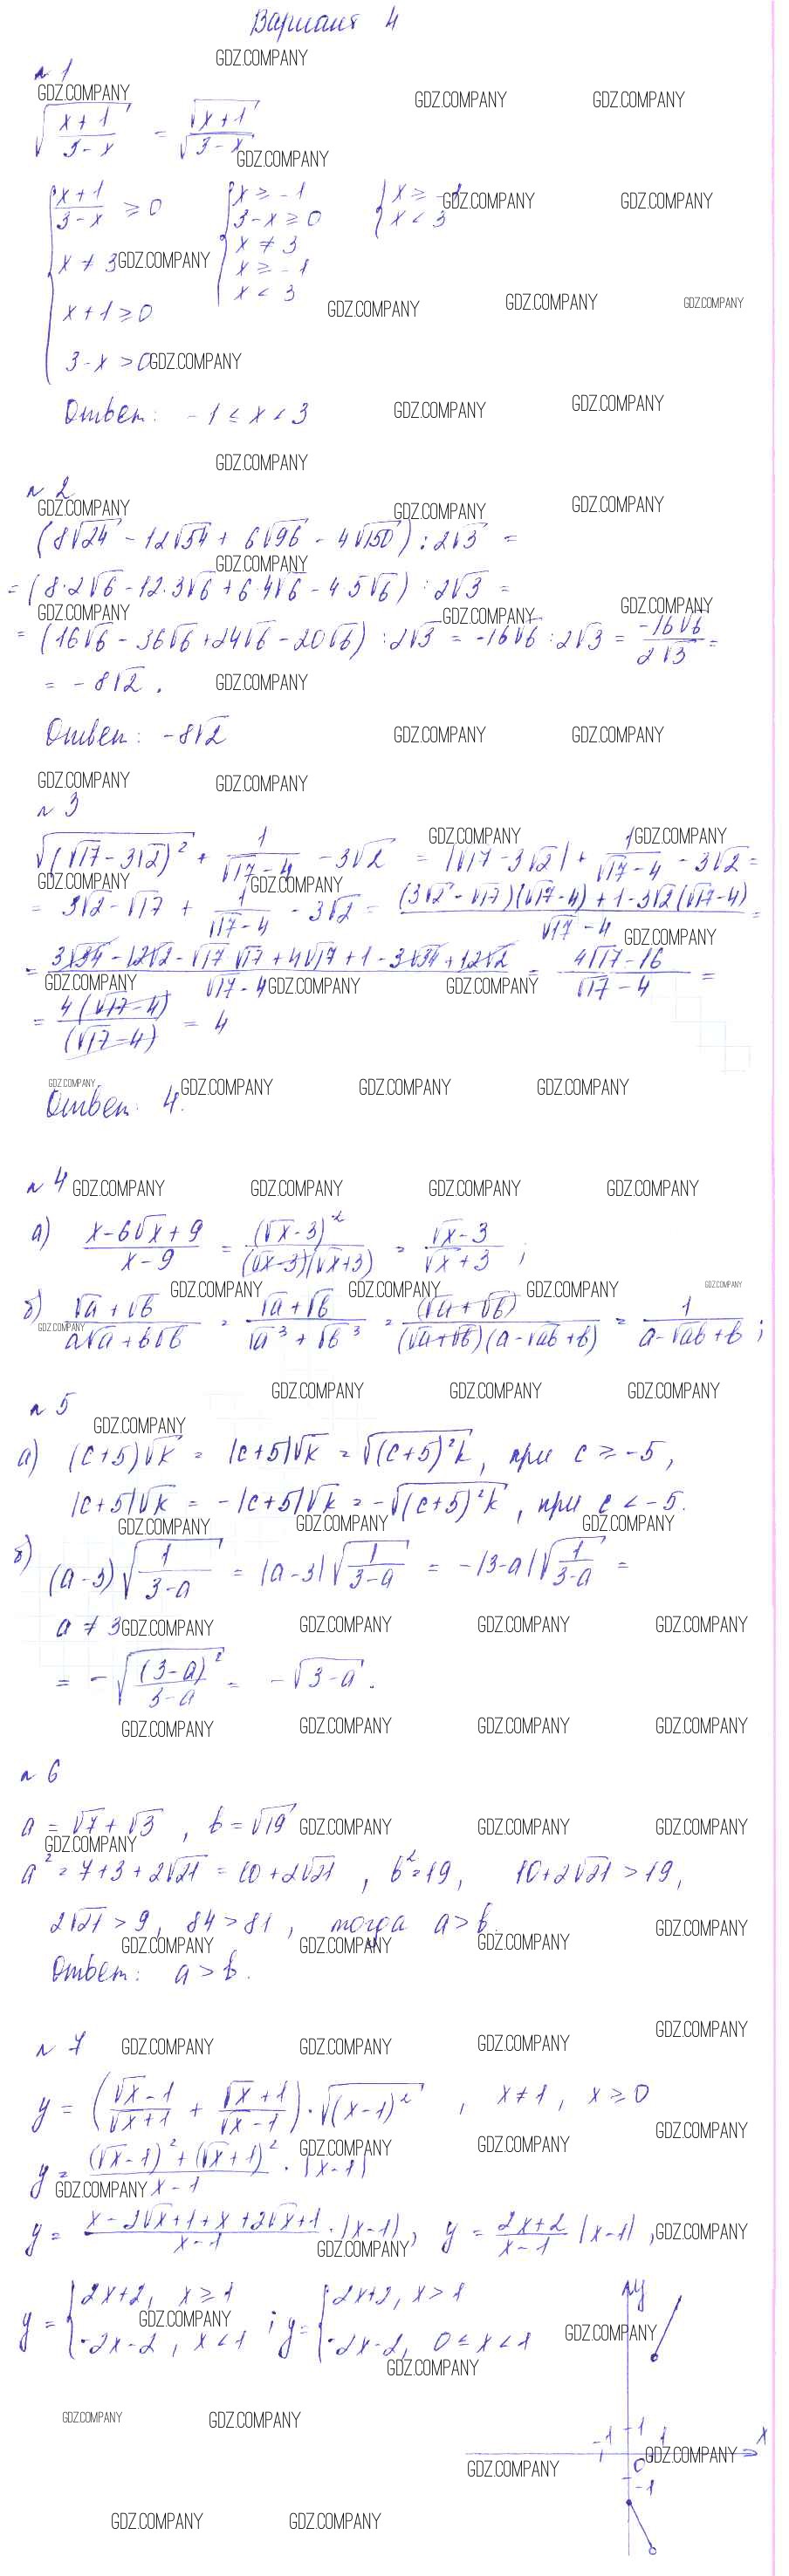 Вариант 4
GDZ.COMPANY
№ 1
√((x+1)/(3-x)) = √(x+1)/√(3-x)
{ (x+1)/(3-x) ≥ 0 { x ≥ -1 { x ≥ -1
3-x ≥ 0 x < 3
x ≠ 3 x ≠ 3
x ≥ -1
x < 3
x+1 ≥ 0
3-x > 0
Ответ: -1 ≤ x < 3
№ 2
(8√24 - 12√54 + 6√96 - 4√150) : 2√3 =
= (8·2√6 - 12·3√6 + 6·4√6 - 4·5√6) : 2√3 =
= (16√6 - 36√6 + 24√6 - 20√6) : 2√3 = -16√6 : 2√3 = -16√6/(2√3) =
= -8√2.
Ответ: -8√2
№ 3
√((√17 - 3√2)²) + 1/(√17-4) - 3√2 = |√17 - 3√2| + 1/(√17-4) - 3√2 =
= 3√2 - √17 + 1/(√17-4) - 3√2 = ((3√2 - √17)(√17-4) + 1 - 3√2(√17-4))/(√17-4) =
= (3√34 - 12√2 - √17·√17 + 4√17 + 1 - 3√34 + 12√2)/(√17-4) = (4√17-16)/(√17-4) =
= 4(√17-4)/(√17-4) = 4
Ответ: 4.
№ 4
а) (x-6√x+9)/(x-9) = (√x-3)²/((√x-3)(√x+3)) = (√x-3)/(√x+3);
б) (√a+√b)/(a√a+b√b) = (√a+√b)/(√a³+√b³) = (√a+√b)/((√a+√b)(a-√ab+b)) = 1/(a-√ab+b);
№ 5
а) (c+5)√k = |c+5|√k = √((c+5)²k), при c ≥ -5,
|c+5|√k = -|c+5|√k = -√((c+5)²k), при c < -5.
б) (a-3)√(1/(3-a)) = |a-3|√(1/(3-a)) = -|3-a|√(1/(3-a)) =
a ≠ 3
= -√((3-a)²/(3-a)) = -√(3-a).
№ 6
a = √7+√3, b = √19
a² = 7+3+2√21 = 10+2√21, b² = 19, 10+2√21 > 19,
2√21 > 9, 84 > 81, тогда a > b.
Ответ: a > b.
№ 7
y = ((√x-1)/(√x+1) + (√x+1)/(√x-1)) · √((x-1)²), x ≠ 1, x ≥ 0
y = ((√x-1)²+(√x+1)²)/(x-1) · |x-1|
y = (x-2√x+1+x+2√x+1)/(x-1) · |x-1|, y = (2x+2)/(x-1) |x-1|,
y = { 2x+2, x ≥ 1 ; y = { 2x+2, x > 1
-2x-2, x < 1 -2x-2, 0 ≤ x < 1
y
-1 1 1 x
0
-1